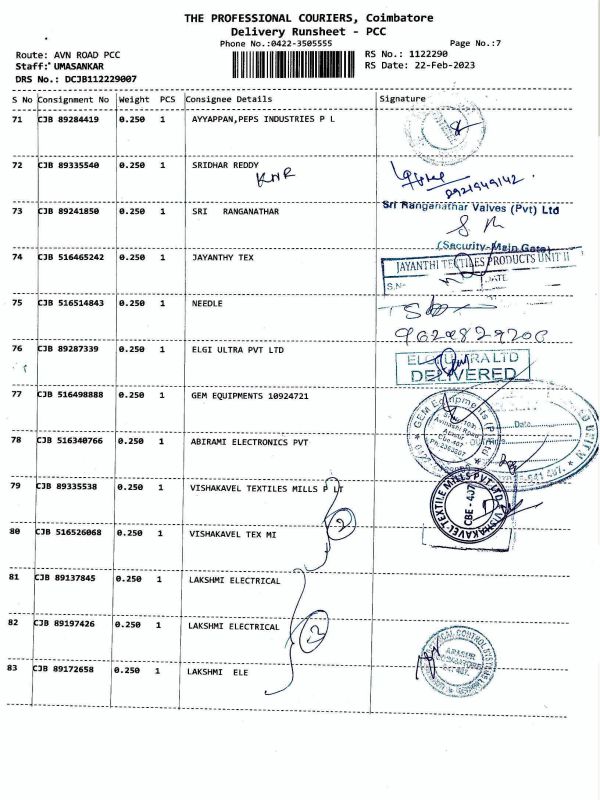 THE PROFESSIONAL COURIERS, Coimbatore
Delivery Runsheet - PCC
Phone No.:0422-3505555 Page No.:7
Route: AVN ROAD PCC RS No.: 1122290
Staff: UMASANKAR RS Date: 22-Feb-2023
DRS No.: DCJB112229007
S No Consignment No Weight PCS Consignee Details Signature
71 CJB 89284419 0.250 1 AYYAPPAN,PEPS INDUSTRIES P L
72 CJB 89335540 0.250 1 SRIDHAR REDDY
KNR
8921949142
73 CJB 89241850 0.250 1 SRI RANGANATHAR Sri Ranganathar Valves (Pvt) Ltd
(Security-Main Gate)
74 CJB 516465242 0.250 1 JAYANTHY TEX JAYANTHI TEXTILES PRODUCTS UNIT II
S.No DATE
75 CJB 516514843 0.250 1 NEEDLE
76 CJB 89287339 0.250 1 ELGI ULTRA PVT LTD ELGI ULTRA LTD
DELIVERED
77 CJB 516498888 0.250 1 GEM EQUIPMENTS 10924721
GEM Equipments (P) Ltd
Avinashi Road
Date
78 CJB 516340766 0.250 1 ABIRAMI ELECTRONICS PVT
79 CJB 89335538 0.250 1 VISHAKAVEL TEXTILES MILLS P LT
VISHAKAVEL TEXTILE MILLS PVT LTD
CBE - 407
2
80 CJB 516526068 0.250 1 VISHAKAVEL TEX MI
81 CJB 89137845 0.250 1 LAKSHMI ELECTRICAL
82 CJB 89197426 0.250 1 LAKSHMI ELECTRICAL
3
83 CJB 89172658 0.250 1 LAKSHMI ELE